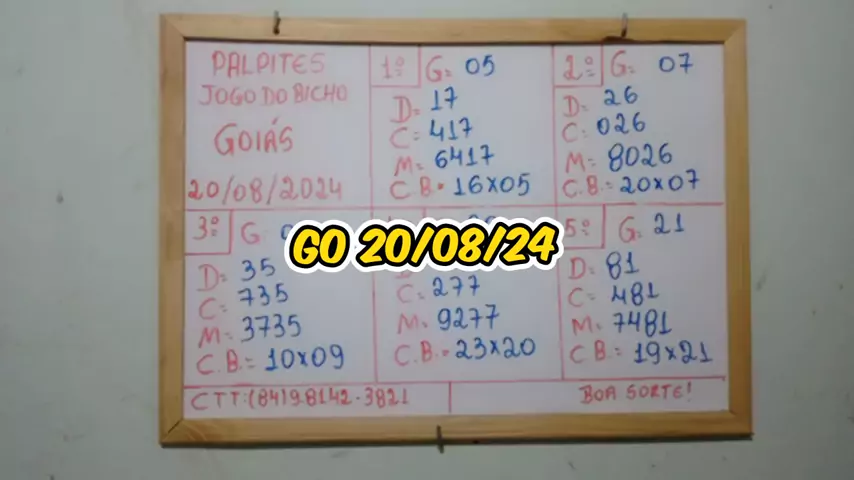 PALPITES
JOGO DO BICHO
GOIÁS
20/08/2024
1º G= 05
D= 17
C= 417
M= 6417
C.B.= 16x05
2º G= 07
D= 26
C= 026
M= 8026
C.B.= 20x07
3º G
D= 35
C= 735
M= 3735
C.B.= 10x09
C= 277
M= 9277
C.B.= 23x20
5º G= 21
D= 81
C= 481
M= 7481
C.B.= 19x21
GO 20/08/24
CTT:(84)98142-3821
BOA SORTE!